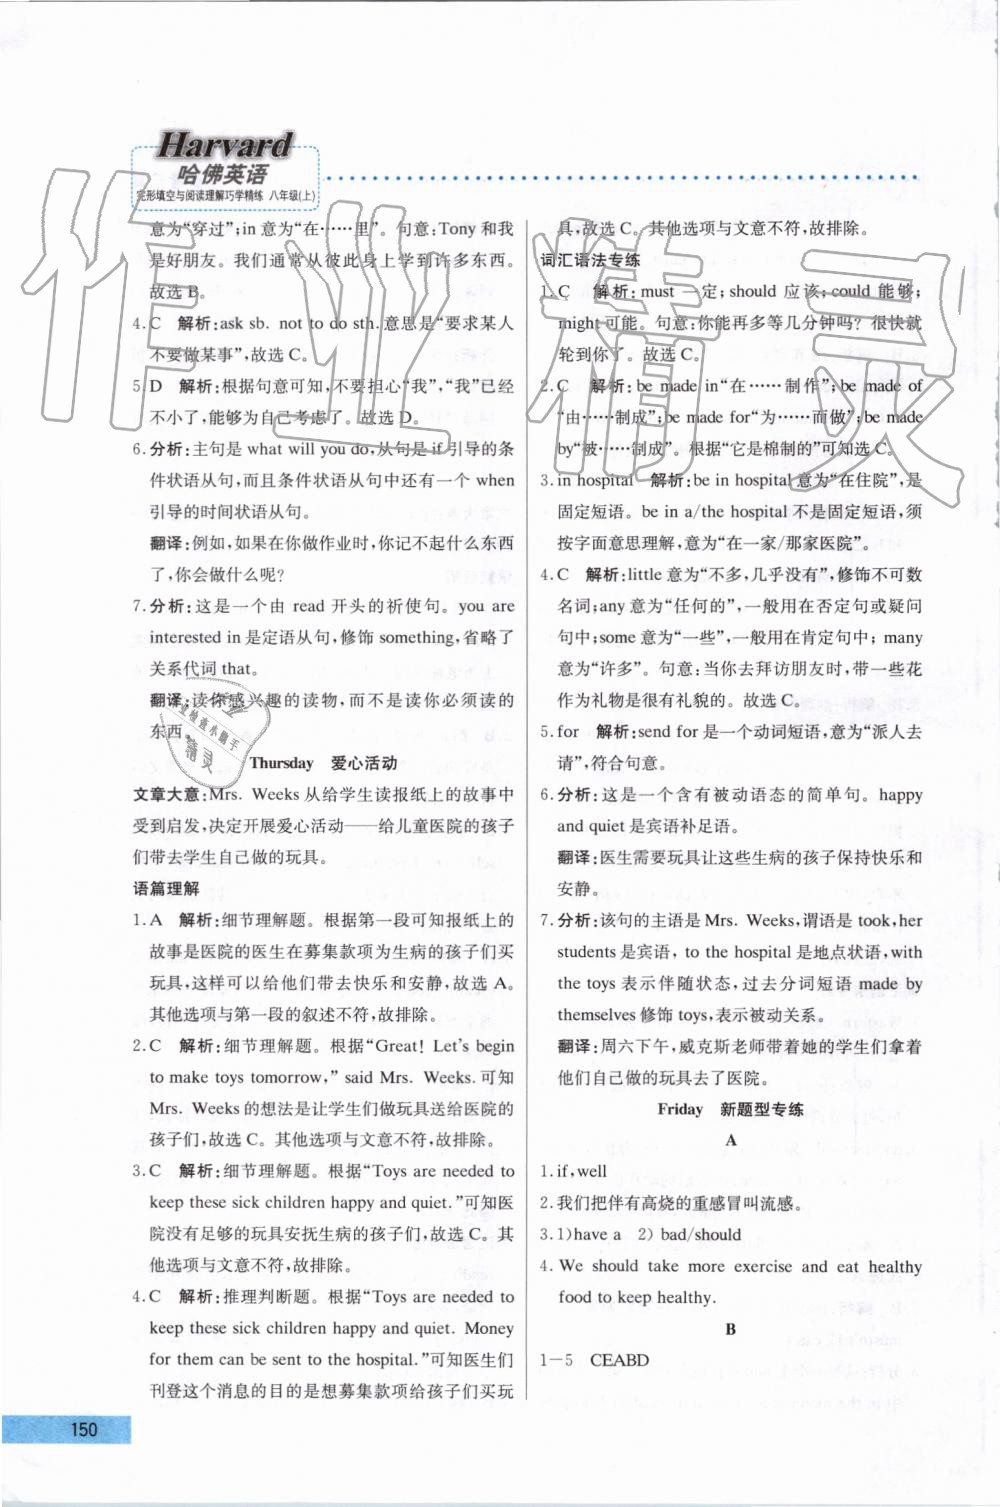 Harvard
哈佛英语
完形填空与阅读理解巧学精练 八年级(上)
意为“穿过”;in 意为“在……里”。句意:Tony和我
是好朋友。我们通常从彼此身上学到许多东西。
故选B。
4. C 解析:ask sb. not to do sth.意思是“要求某人
不要做某事”,故选C。
5. D 解析:根据句意可知,不要担心“我”,“我”已经
不小了,能够为自己考虑了。故选D。
6. 分析:主句是 what will you do,从句是 if 引导的条
件状语从句,而且条件状语从句中还有一个 when
引导的时间状语从句。
翻译:例如,如果在你做作业时,你记不起什么东西
了,你会做什么呢?
7. 分析:这是一个由 read 开头的祈使句。you are
interested in 是定语从句,修饰 something,省略了
关系代词 that。
翻译:读你感兴趣的读物,而不是读你必须读的
东西。
Thursday 爱心活动
文章大意:Mrs. Weeks 从给学生读报纸上的故事中
受到启发,决定开展爱心活动——给儿童医院的孩子
们带去学生自己做的玩具。
语篇理解
1. A 解析:细节理解题。根据第一段可知报纸上的
故事是医院的医生在募集款项为生病的孩子们买
玩具,这样可以给他们带去快乐和安静,故选A。
其他选项与第一段的叙述不符,故排除。
2. C 解析:细节理解题。根据“Great! Let's begin
to make toys tomorrow,” said Mrs. Weeks.可知
Mrs. Weeks 的想法是让学生们做玩具送给医院的
孩子们,故选C。其他选项与文意不符,故排除。
3. C 解析:细节理解题。根据“Toys are needed to
keep these sick children happy and quiet.”可知医
院没有足够的玩具安抚生病的孩子们,故选C。其
他选项与文意不符,故排除。
4. C 解析:推理判断题。根据“Toys are needed to
keep these sick children happy and quiet. Money
for them can be sent to the hospital.”可知医生们
刊登这个消息的目的是想募集款项给孩子们买玩
具,故选C。其他选项与文意不符,故排除。
词汇语法专练
1. C 解析:must 一定;should 应该;could 能够;
might 可能。句意:你能再多等几分钟吗?很快就
轮到你了。故选C。
2. C 解析:be made in“在……制作”;be made of
“由……制成”;be made for“为……而做”;be made
by“被……制成”。根据“它是棉制的”可知选C。
3. in hospital 解析:be in hospital 意为“在住院”,是
固定短语。be in a/the hospital 不是固定短语,须
按字面意思理解,意为“在一家/那家医院”。
4. C 解析:little 意为“不多,几乎没有”,修饰不可数
名词;any 意为“任何的”,一般用在否定句或疑问
句中;some 意为“一些”,一般用在肯定句中;many
意为“许多”。句意:当你去拜访朋友时,带一些花
作为礼物是很有礼貌的。故选C。
5. for 解析:send for 是一个动词短语,意为“派人去
请”,符合句意。
6. 分析:这是一个含有被动语态的简单句。happy
and quiet 是宾语补足语。
翻译:医生需要玩具让这些生病的孩子保持快乐和
安静。
7. 分析:该句的主语是 Mrs. Weeks,谓语是 took,her
students 是宾语, to the hospital 是地点状语,with
the toys 表示伴随状态,过去分词短语 made by
themselves 修饰 toys,表示被动关系。
翻译:周六下午,威克斯老师带着她的学生们拿着
他们自己做的玩具去了医院。
Friday 新题型专练
A
1. if,well
2. 我们把伴有高烧的重感冒叫流感。
3. 1)have a 2) bad/should
4. We should take more exercise and eat healthy
food to keep healthy.
B
1—5 CEABD
150
作业精灵
精灵